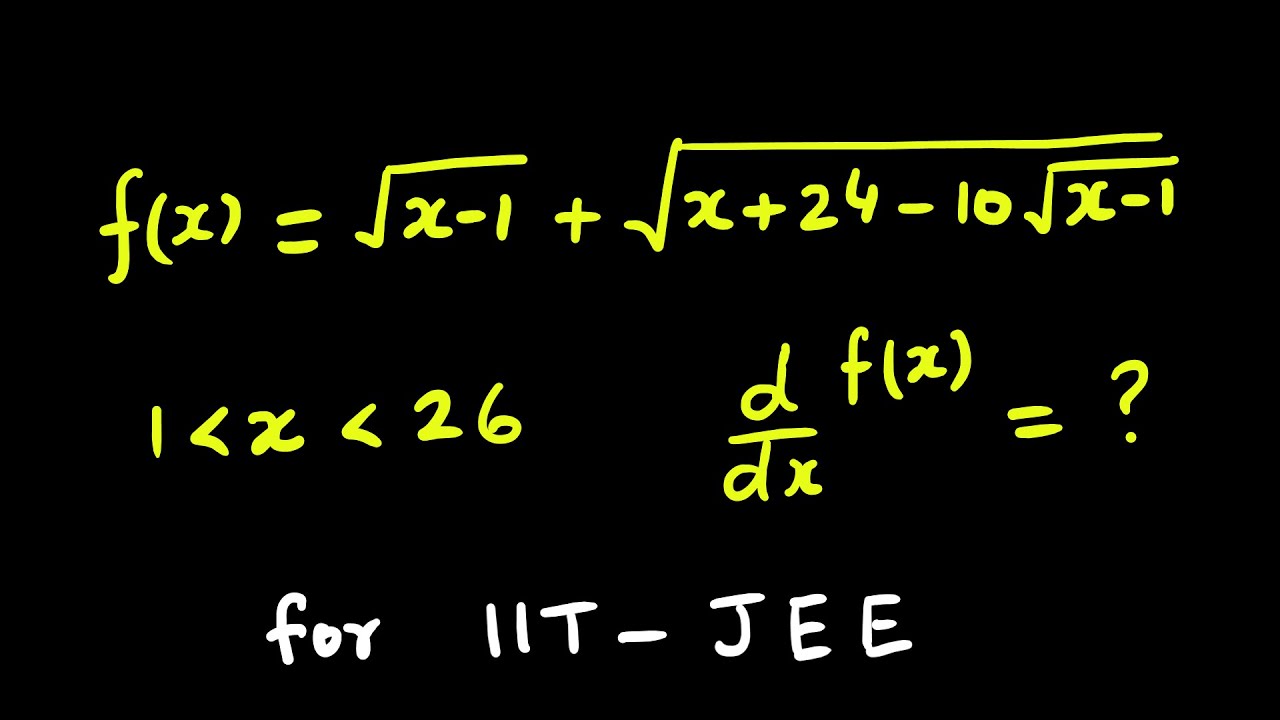 f(x) = √(x-1) + √(x+24-10√(x-1))
1<x<26 d/dx f(x) = ?
for IIT-JEE